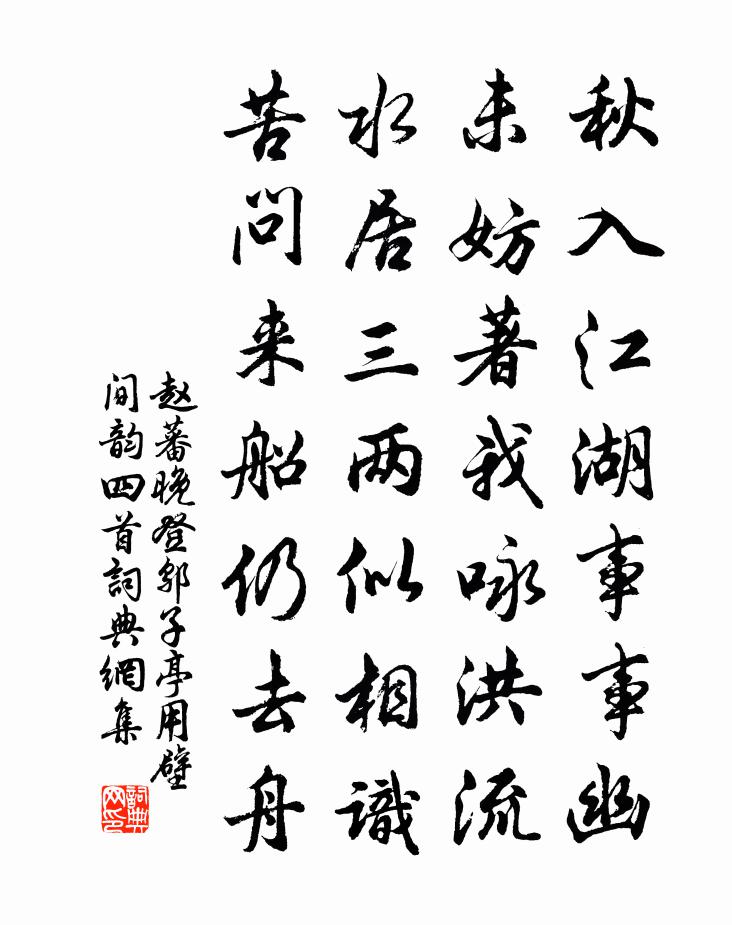 秋入江湖事事幽
未妨著我咏洪流
水居三两似相識
苦问来船仍去舟
赵蕃晚登邬子亭用壁
间韵四首詞典網集
詞典网印